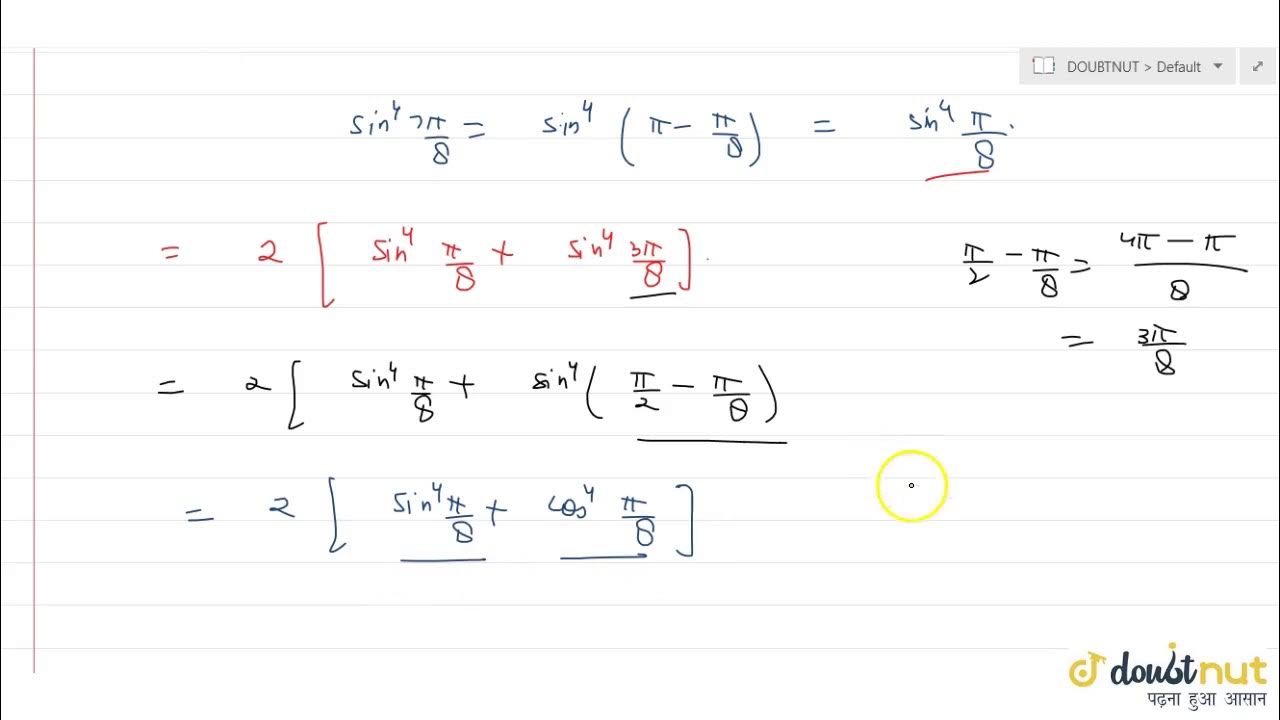 DOUBTNUT > Default
sin⁴ 7π/8 = sin⁴ (π − π/8) = sin⁴ π/8.
= 2 [ sin⁴ π/8 + sin⁴ 3π/8 ].
π/2 − π/8 = (4π − π)/8
= 3π/8
= 2 [ sin⁴ π/8 + sin⁴ ( π/2 − π/8 )
= 2 [ sin⁴ π/8 + cos⁴ π/8 ]
doubtnut
पढ़ना हुआ आसान